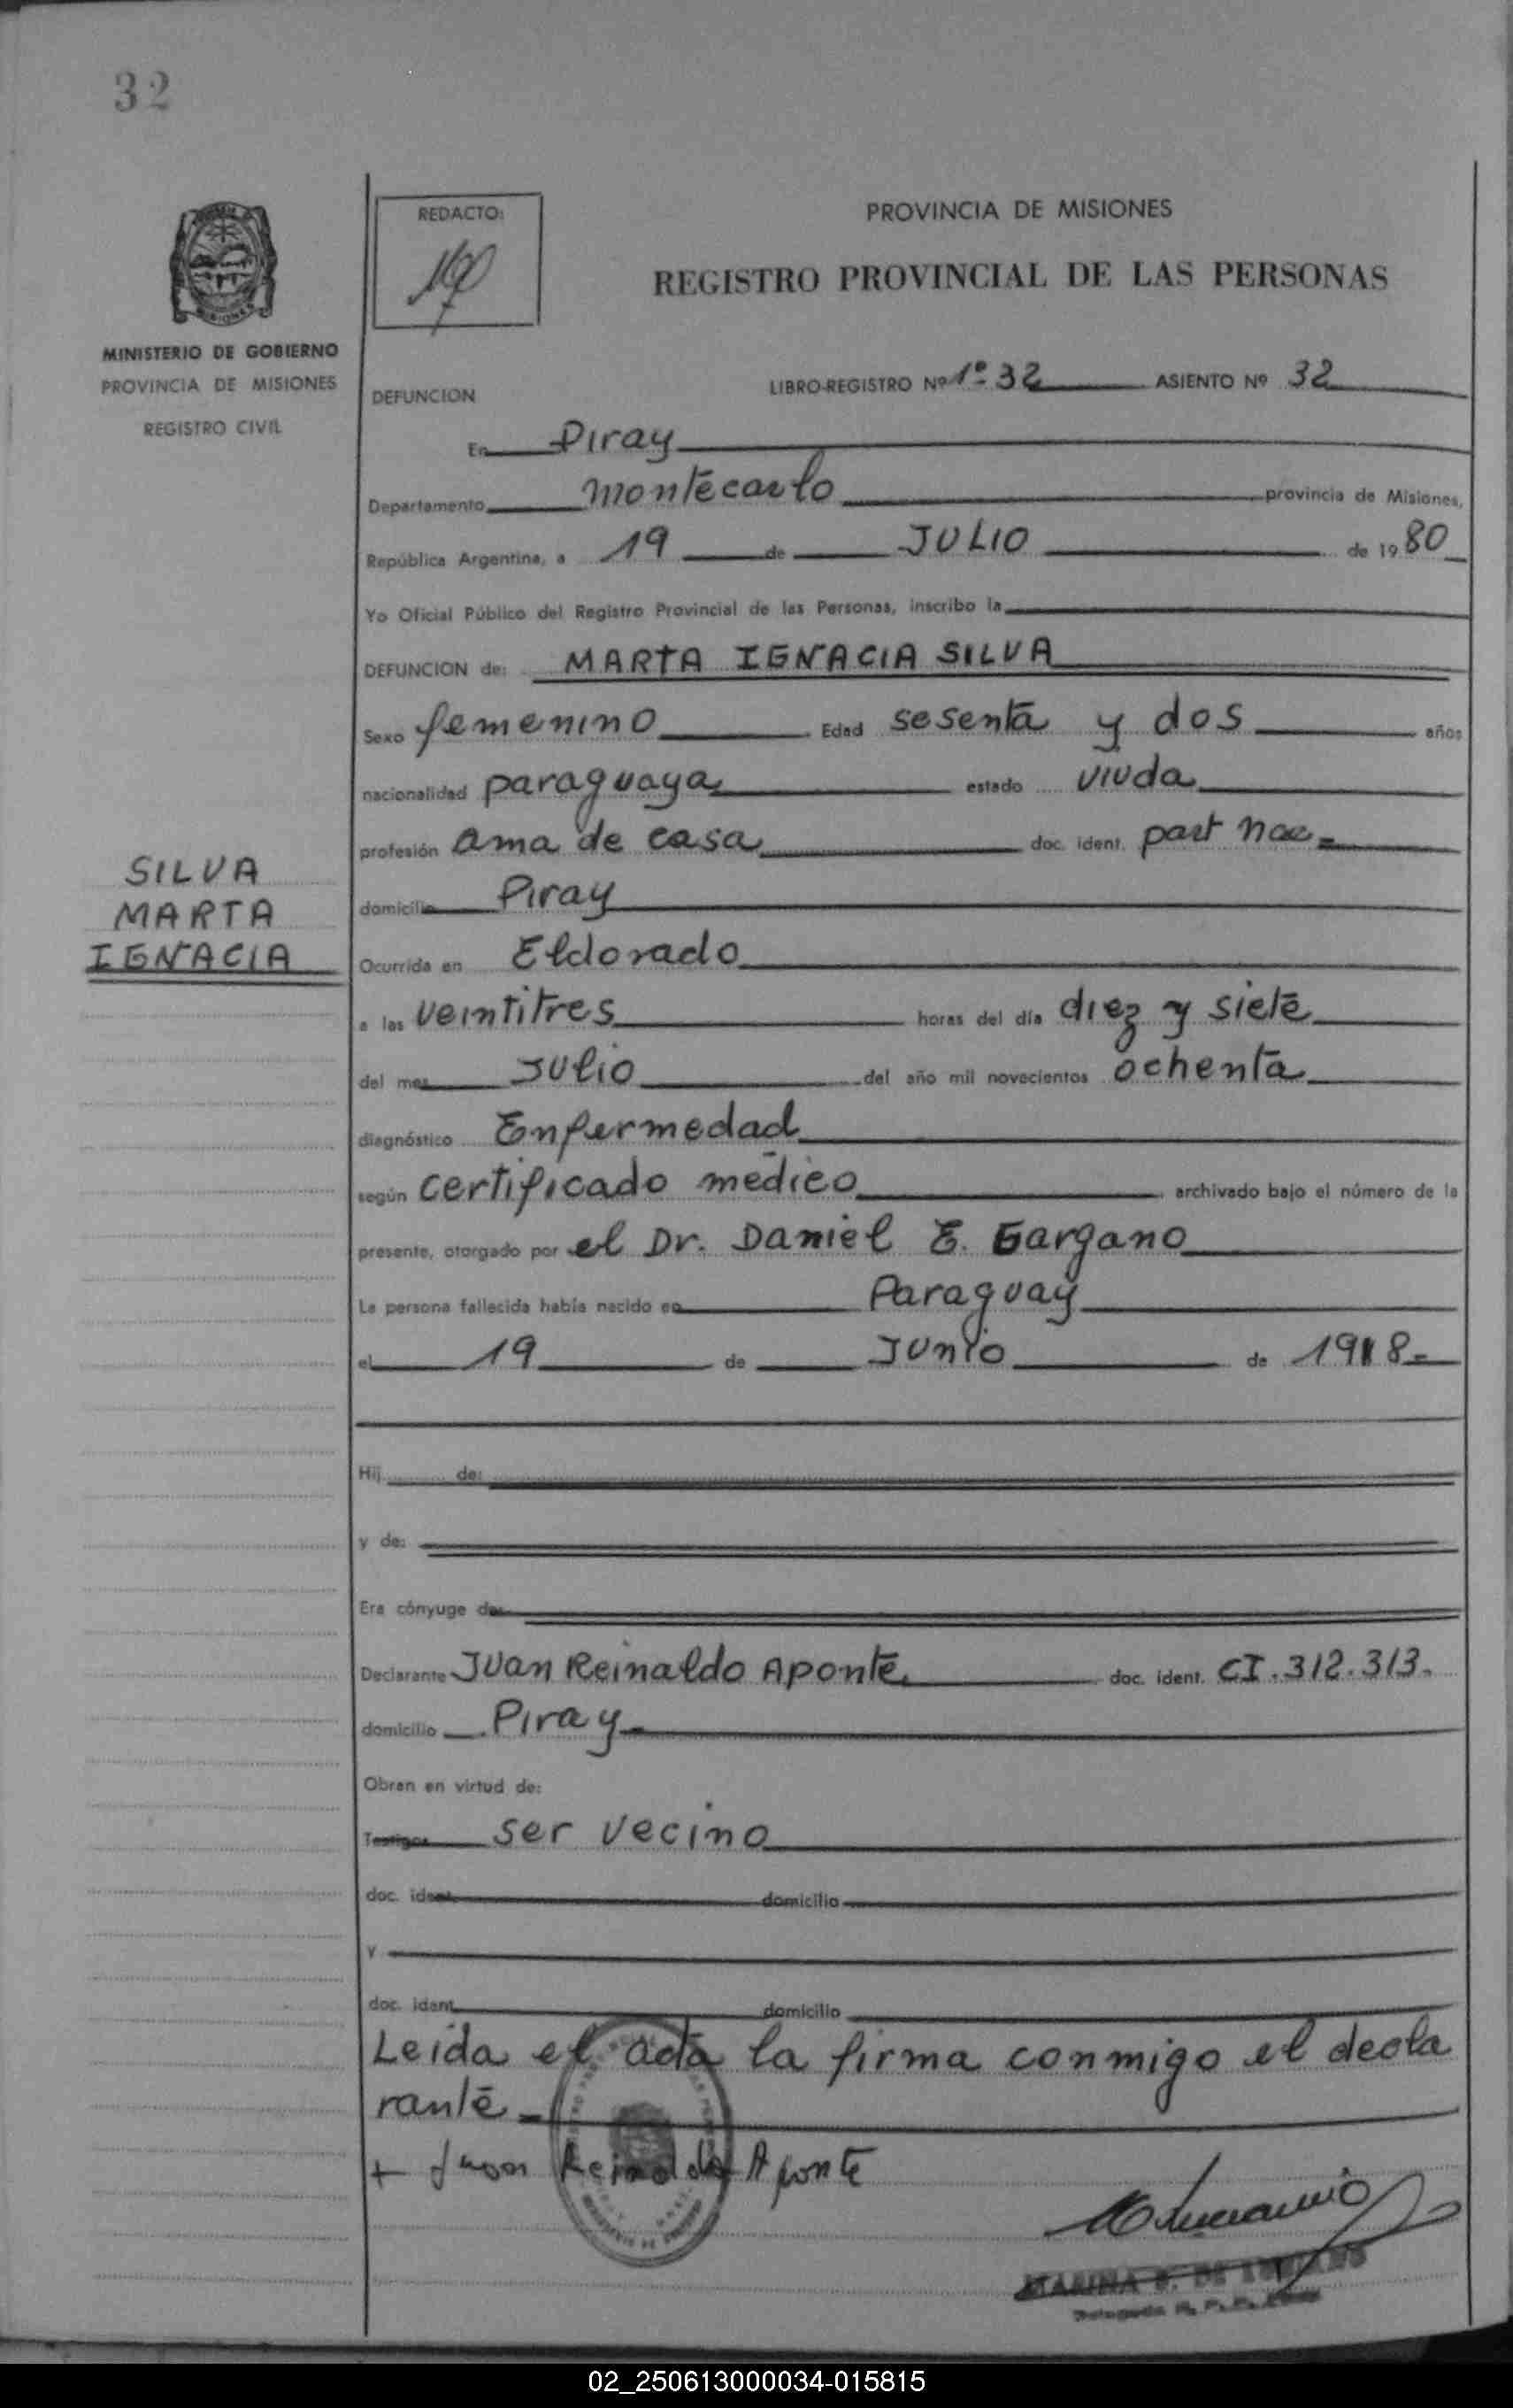 32
REDACTO:
PROVINCIA DE MISIONES
REGISTRO PROVINCIAL DE LAS PERSONAS
MINISTERIO DE GOBIERNO
PROVINCIA DE MISIONES
REGISTRO CIVIL
DEFUNCION
LIBRO-REGISTRO Nº 1º 32 ASIENTO Nº 32
En Piray
Departamento Montecarlo provincia de Misiones,
República Argentina, a 19 de JULIO de 1980
Yo Oficial Público del Registro Provincial de las Personas, inscribo la
DEFUNCION de: MARTA IGNACIA SILVA
Sexo femenino Edad sesenta y dos años
nacionalidad paraguaya estado viuda
profesión ama de casa doc. ident. part nac-
SILVA
MARTA
IGNACIA
domicilio Piray
Ocurrida en Eldorado
a las veintitres horas del día diez y siete
del mes Julio del año mil novecientos ochenta
diagnóstico Enfermedad
según certificado medico archivado bajo el número de la
presente, otorgado por el Dr. Daniel E. Gargano
La persona fallecida había nacido en Paraguay
el 19 de Junio de 1918-
Hij de:
y de:
Era cónyuge de:
Declarante Juan Reinaldo Aponte doc. ident. CI. 312.313.
domicilio Piray
Obran en virtud de:
Testigos ser vecino
doc. ident. domicilio
y
doc. ident. domicilio
Leida el acta la firma conmigo el decla
rante-
+ Juan Reinaldo Aponte
MARINA DE
Delegada R. P. P.
02_250613000034-015815